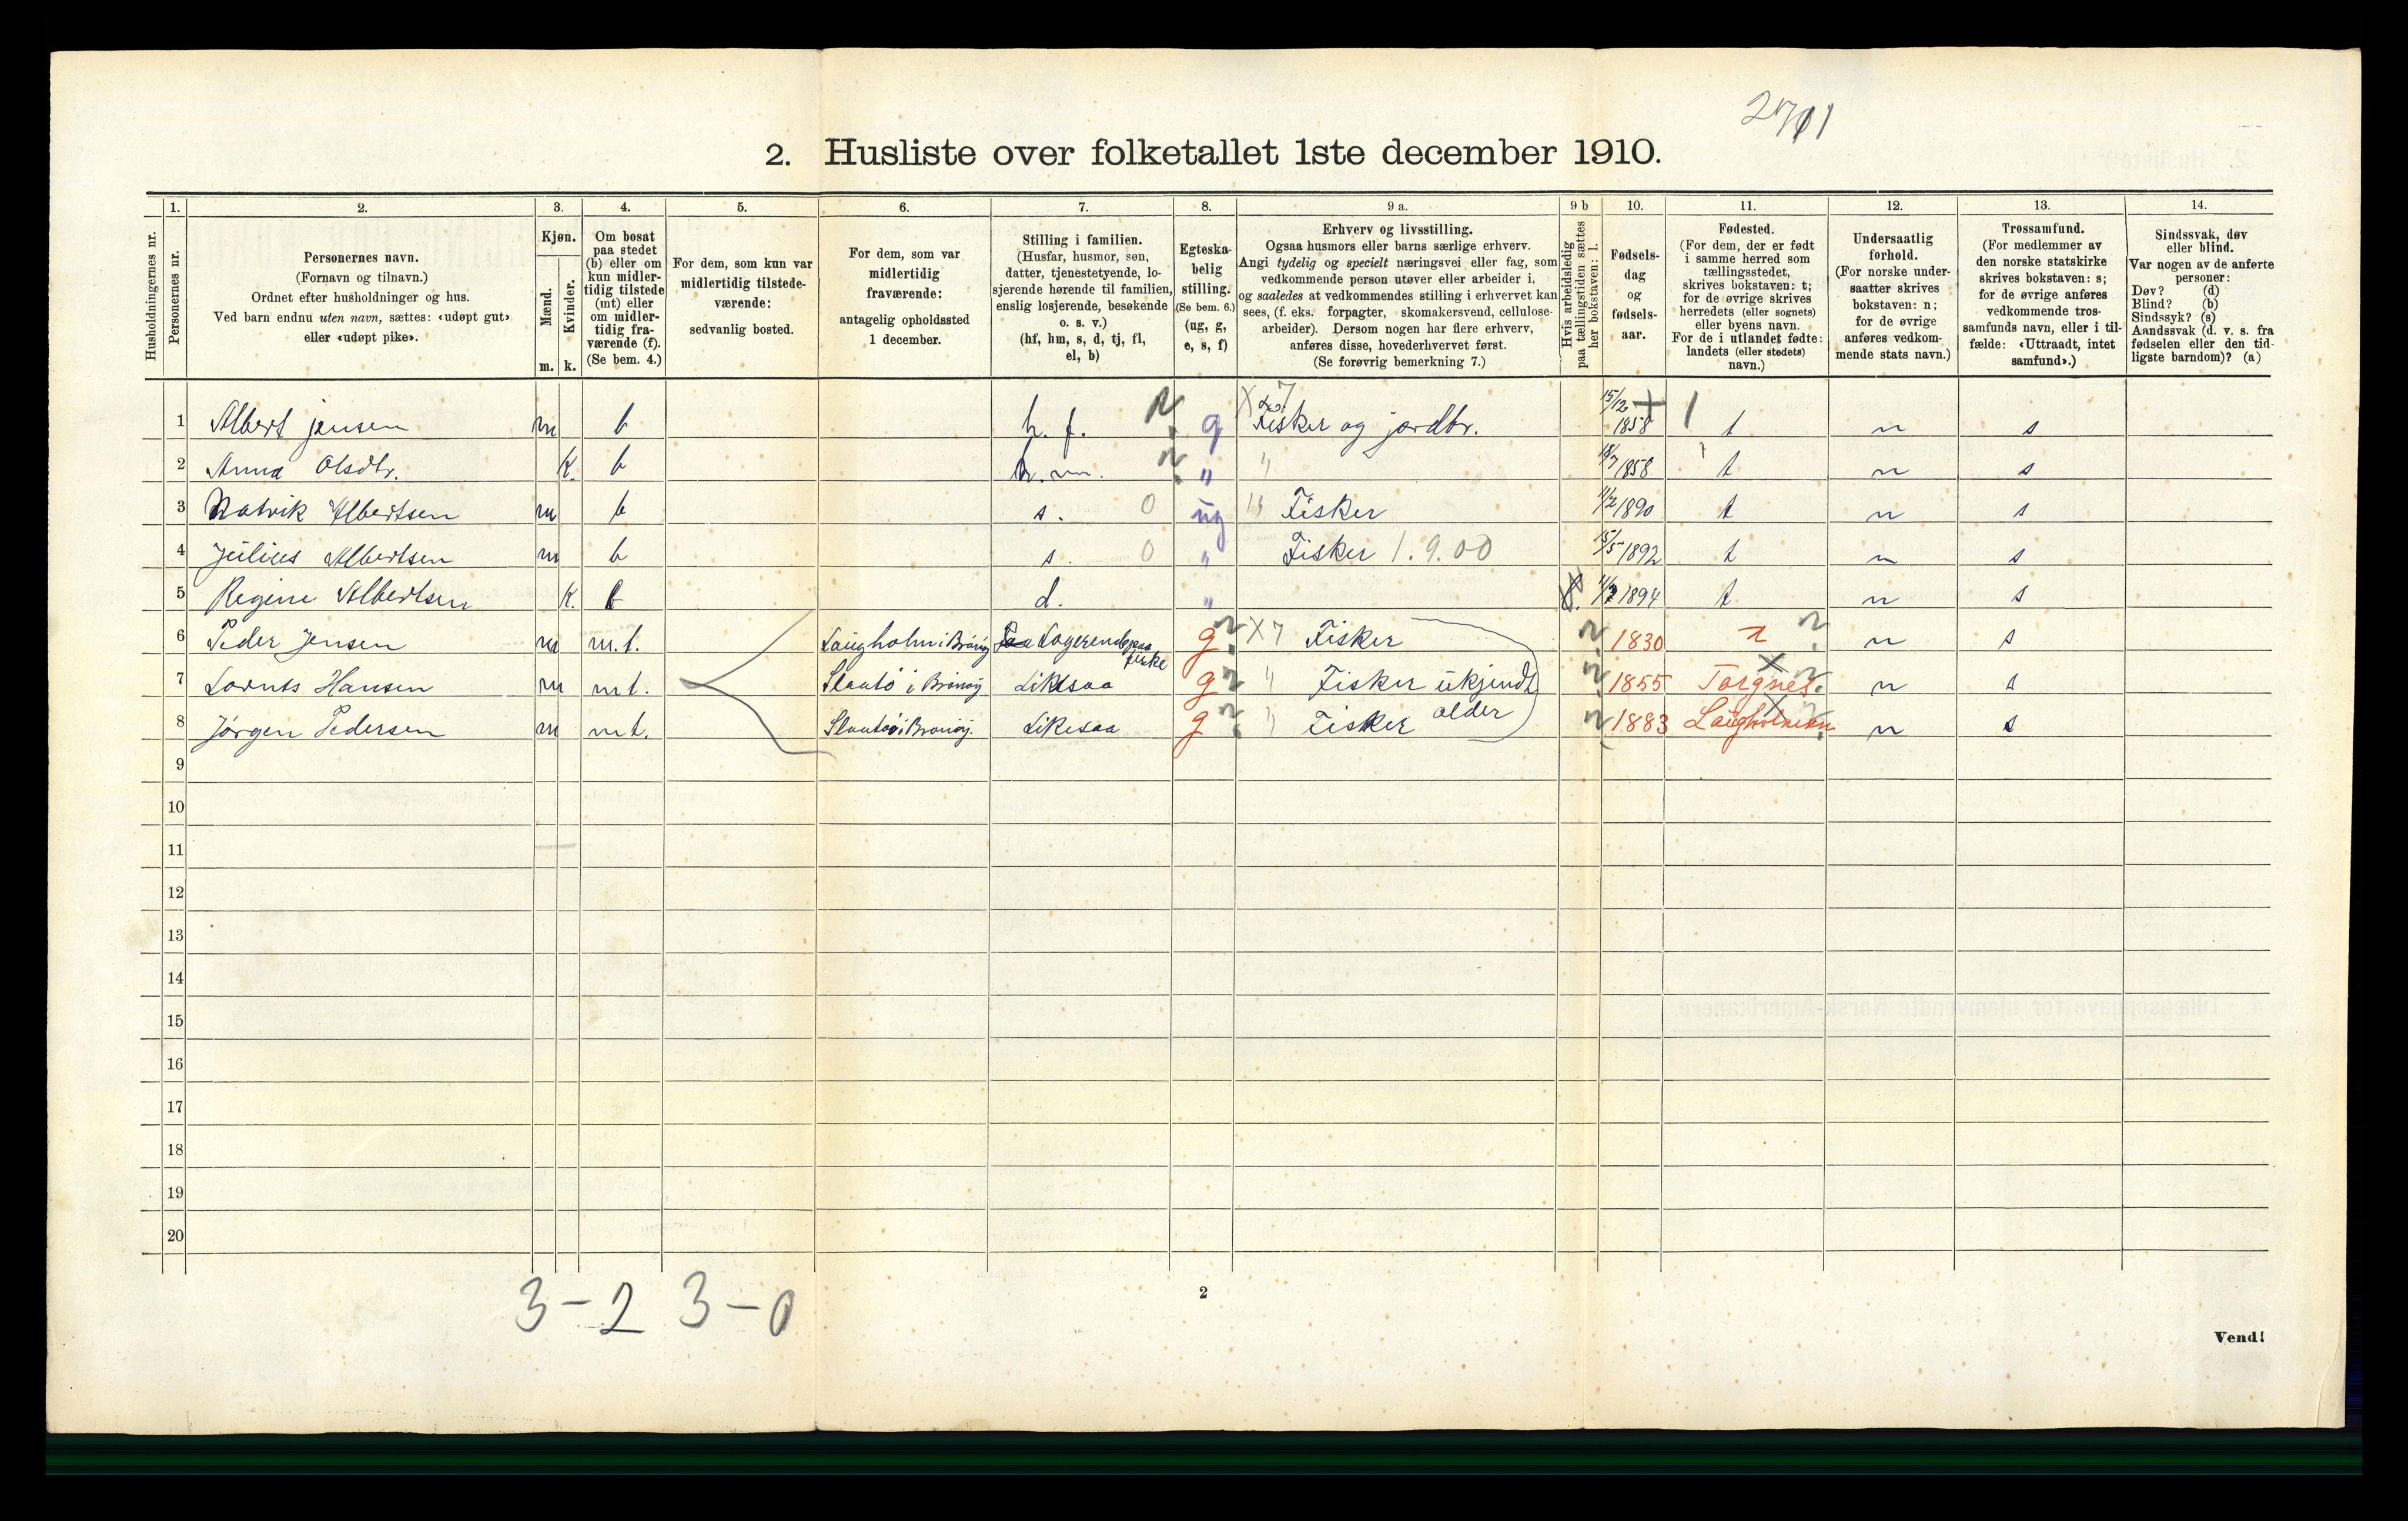 2701
2. Husliste over folketallet 1ste december 1910.
1. 2. 3. 4. 5. 6. 7. 8. 9 a. 9 b 10. 11. 12. 13. 14.
Husholdningernes nr.
Personernes nr.
Personernes navn.
(Fornavn og tilnavn.)
Ordnet efter husholdninger og hus.
Ved barn endnu uten navn, sættes: «udøpt gut»
eller «udøpt pike».
Kjøn.
Mænd.
Kvinder.
m. k.
Om bosat
paa stedet
(b) eller om
kun midler-
tidig tilstede
(mt) eller
om midler-
tidig fra-
værende (f).
(Se bem. 4.)
For dem, som kun var
midlertidig tilstede-
værende:
sedvanlig bosted.
For dem, som var
midlertidig
fraværende:
antagelig opholdssted
1 december.
Stilling i familien.
(Husfar, husmor, søn,
datter, tjenestetyende, lo-
sjerende hørende til familien,
enslig losjerende, besøkende
o. s. v.)
(hf, hm, s, d, tj, fl,
el, b)
Egteska-
belig
stilling.
(Se bem. 6.)
(ug, g,
e, s, f)
Erhverv og livsstilling.
Ogsaa husmors eller barns særlige erhverv.
Angi tydelig og specielt næringsvei eller fag, som
vedkommende person utøver eller arbeider i,
og saaledes at vedkommendes stilling i erhvervet kan
sees, (f. eks. forpagter, skomakersvend, cellulose-
arbeider). Dersom nogen har flere erhverv,
anføres disse, hovederhvervet først.
(Se forøvrig bemerkning 7.)
Hvis arbeidsledig
paa tællingstiden sættes
her bokstaven: l.
Fødsels-
dag
og
fødsels-
aar.
Fødested.
(For dem, der er født
i samme herred som
tællingsstedet,
skrives bokstaven: t;
for de øvrige skrives
herredets (eller sognets)
eller byens navn.
For de i utlandet fødte:
landets (eller stedets)
navn.)
Undersaatlig
forhold.
(For norske under-
saatter skrives
bokstaven: n;
for de øvrige
anføres vedkom-
mende stats navn.)
Trossamfund.
(For medlemmer av
den norske statskirke
skrives bokstaven: s;
for de øvrige anføres
vedkommende tros-
samfunds navn, eller i til-
fælde: «Uttraadt, intet
samfund».)
Sindssvak, døv
eller blind.
Var nogen av de anførte
personer:
Døv? (d)
Blind? (b)
Sindssyk? (s)
Aandssvak (d. v. s. fra
fødselen eller den tid-
ligste barndom)? (a)
1 Albert jensen m b h. f. g Fisker og jordbr. 15/12 1858 t n s
2 Anna Olsdtr. k. b h. m. " 18/7 1858 t n s
3 Albertsen m b s. 0 ug Fisker 11/2 1890 t n s
4 Julius Albertsen m b s. 0 " Fisker 1.9.00 15/5 1892 t n s
5 Regine Albertsen k. b d. " 1894 t n s
6 Peder Jensen m m.t. Laugholm i Brönöy Logerende paa fiske g X 7 Fisker 1830 t n s
7 Lornts Hansen m mt. i Brönöy Likesaa g " Fisker ukjendt 1855 Torgnes n s
8 Jörgen Pedersen m mt. i Brönöy. Likesaa g " Fisker alder 1883 Laugholmen n s
9
10
11
12
13
14
15
16
17
18
19
20
3 - 2 3 - 0
2
Vend!